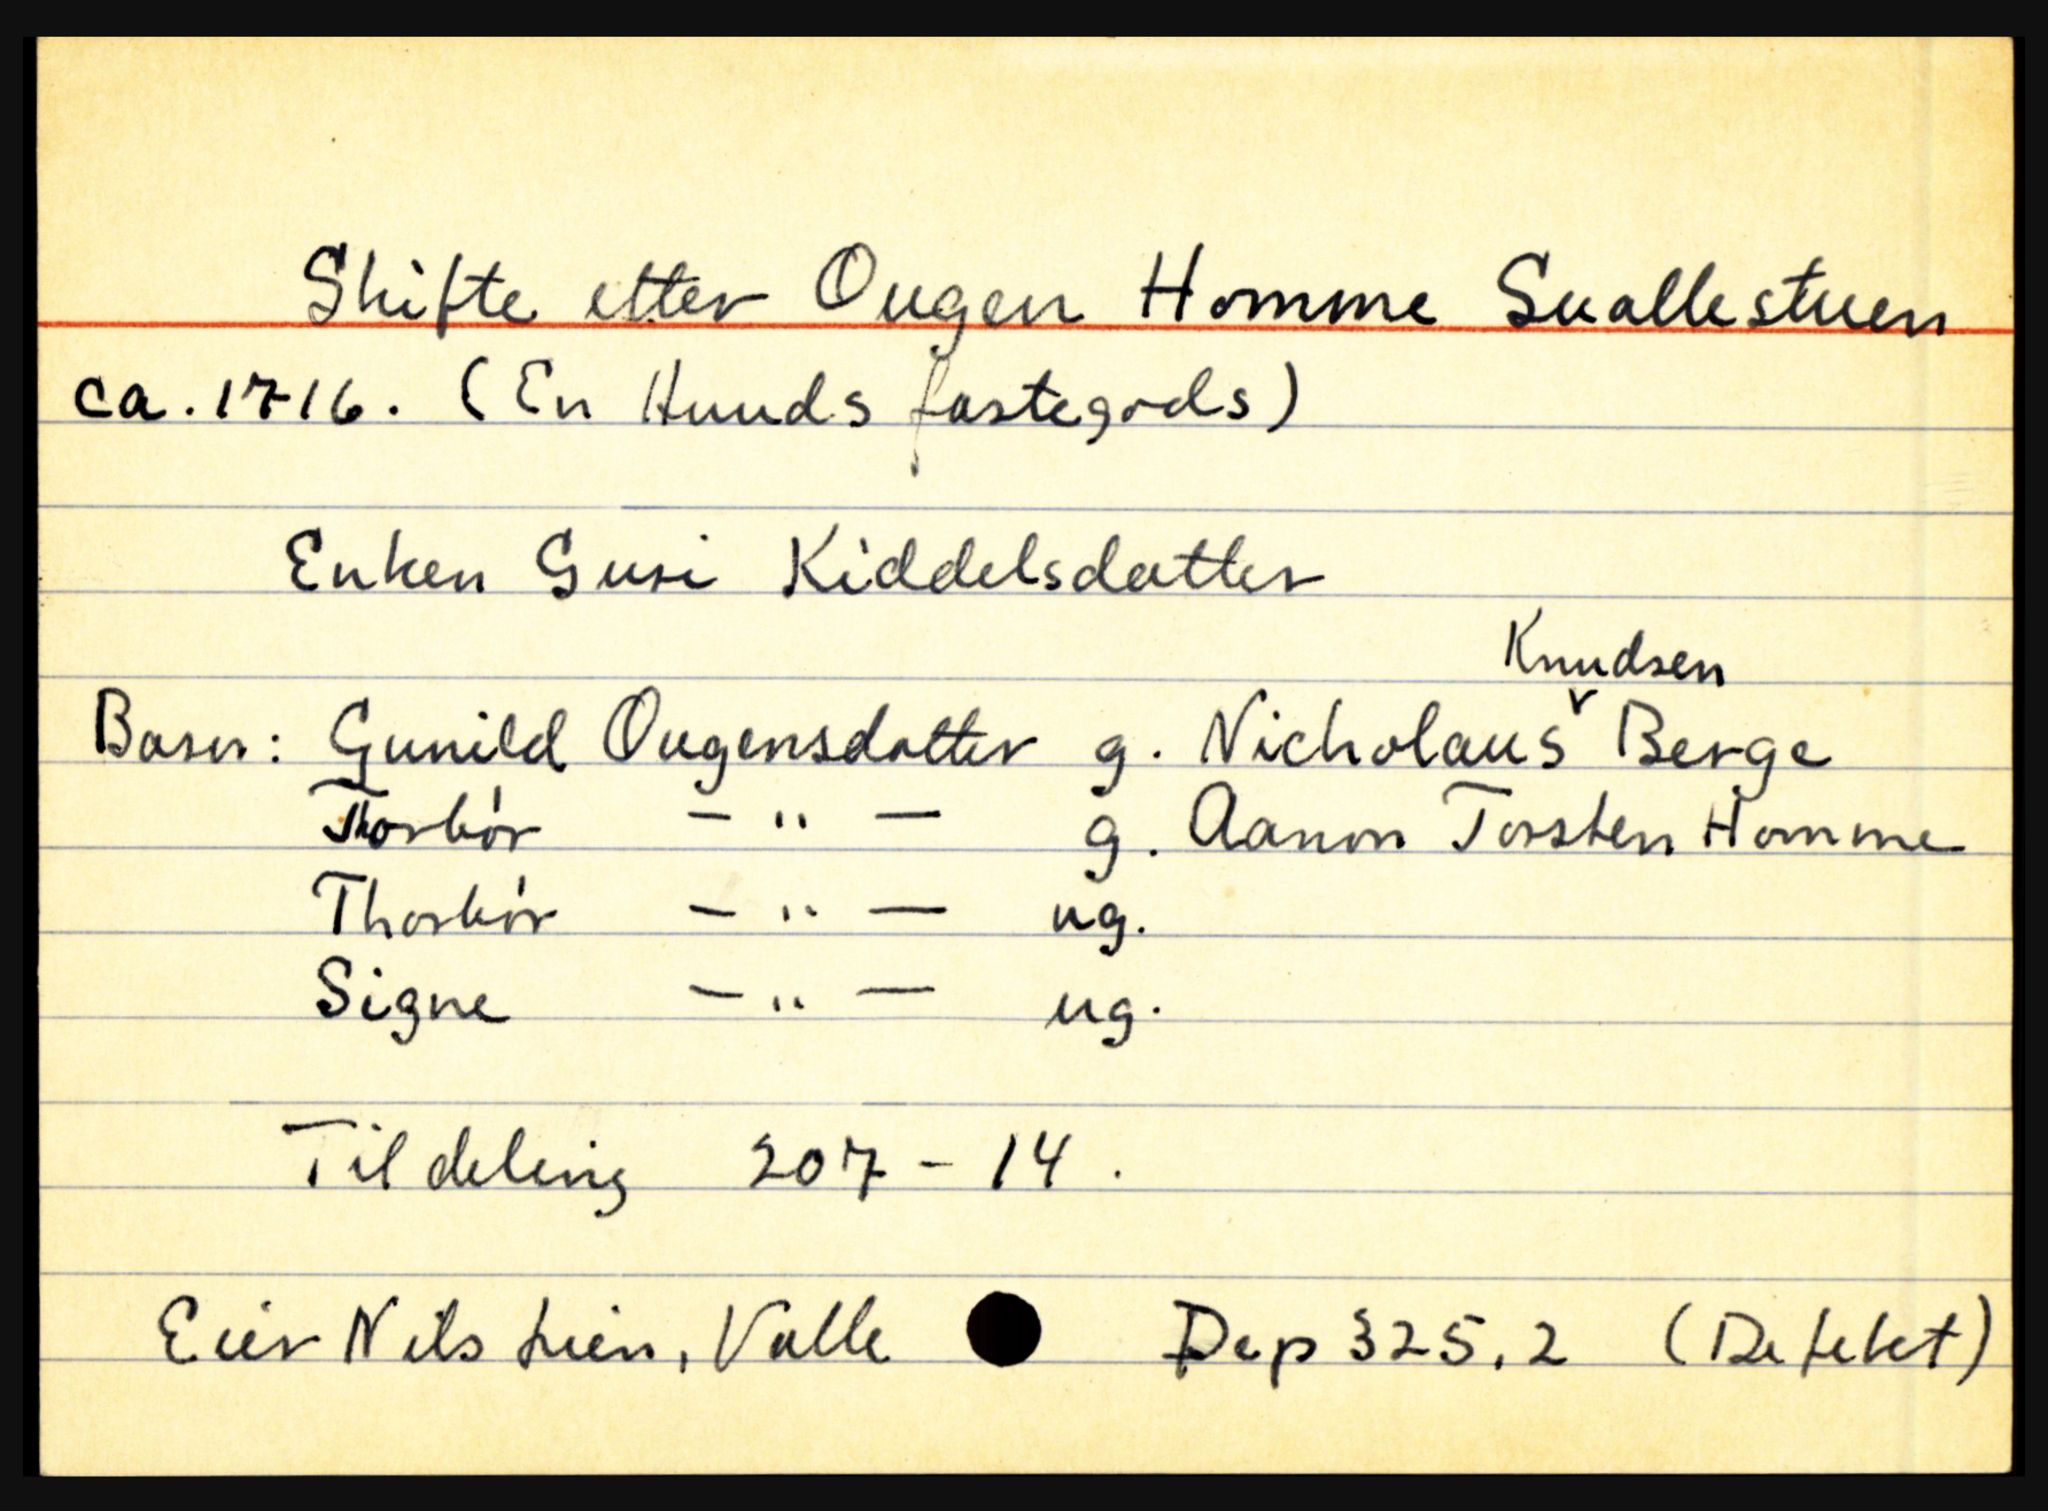 Skifte etter Ougen Homme Suallestuen
ca. 1716. (En Huuds fastegods)
Enken Guri Kiddelsdatter
Knudsen
Barn: Gunild Ougensdatter g. Nicholaus Berge
Thorbór - " - g. Aanon Torsten Homme
Thorbór - " - ug.
Signe - " - ug.
Til deling 207 - 14.
Eier Nils Lien, Valle Dep 325,2 (Defekt)